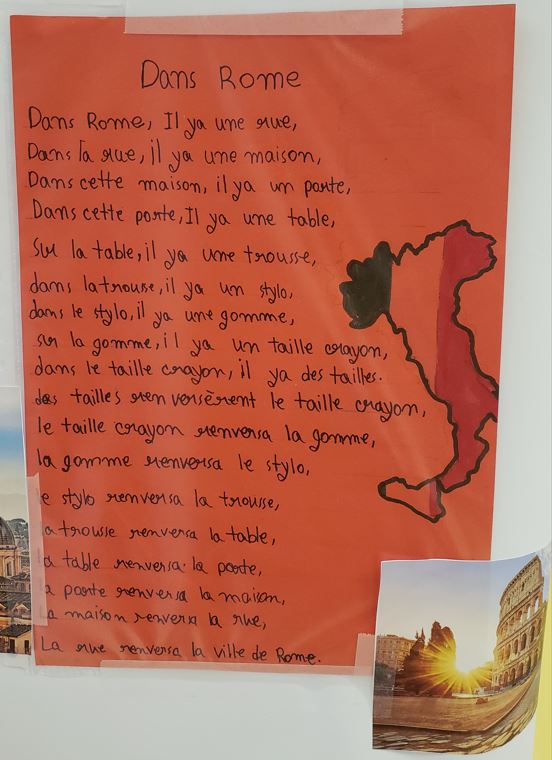 Dans Rome
Dans Rome, Il ya une rue,
Dans la rue, il ya une maison,
Dans cette maison, il ya un porte,
Dans cette porte, Il ya une table,
Sur la table, il ya une trousse,
dans la trousse, il ya un stylo,
dans le stylo, il ya une gomme,
sur la gomme, il ya un taille crayon,
dans le taille crayon, il ya des tailles.
des tailles renversèrent le taille crayon,
le taille crayon renversa la gomme,
la gomme renversa le stylo,
le stylo renversa la trousse,
la trousse renversa la table,
la table renversa la porte,
la porte renversa la maison,
La maison renversa la rue,
La rue renversa la ville de Rome.